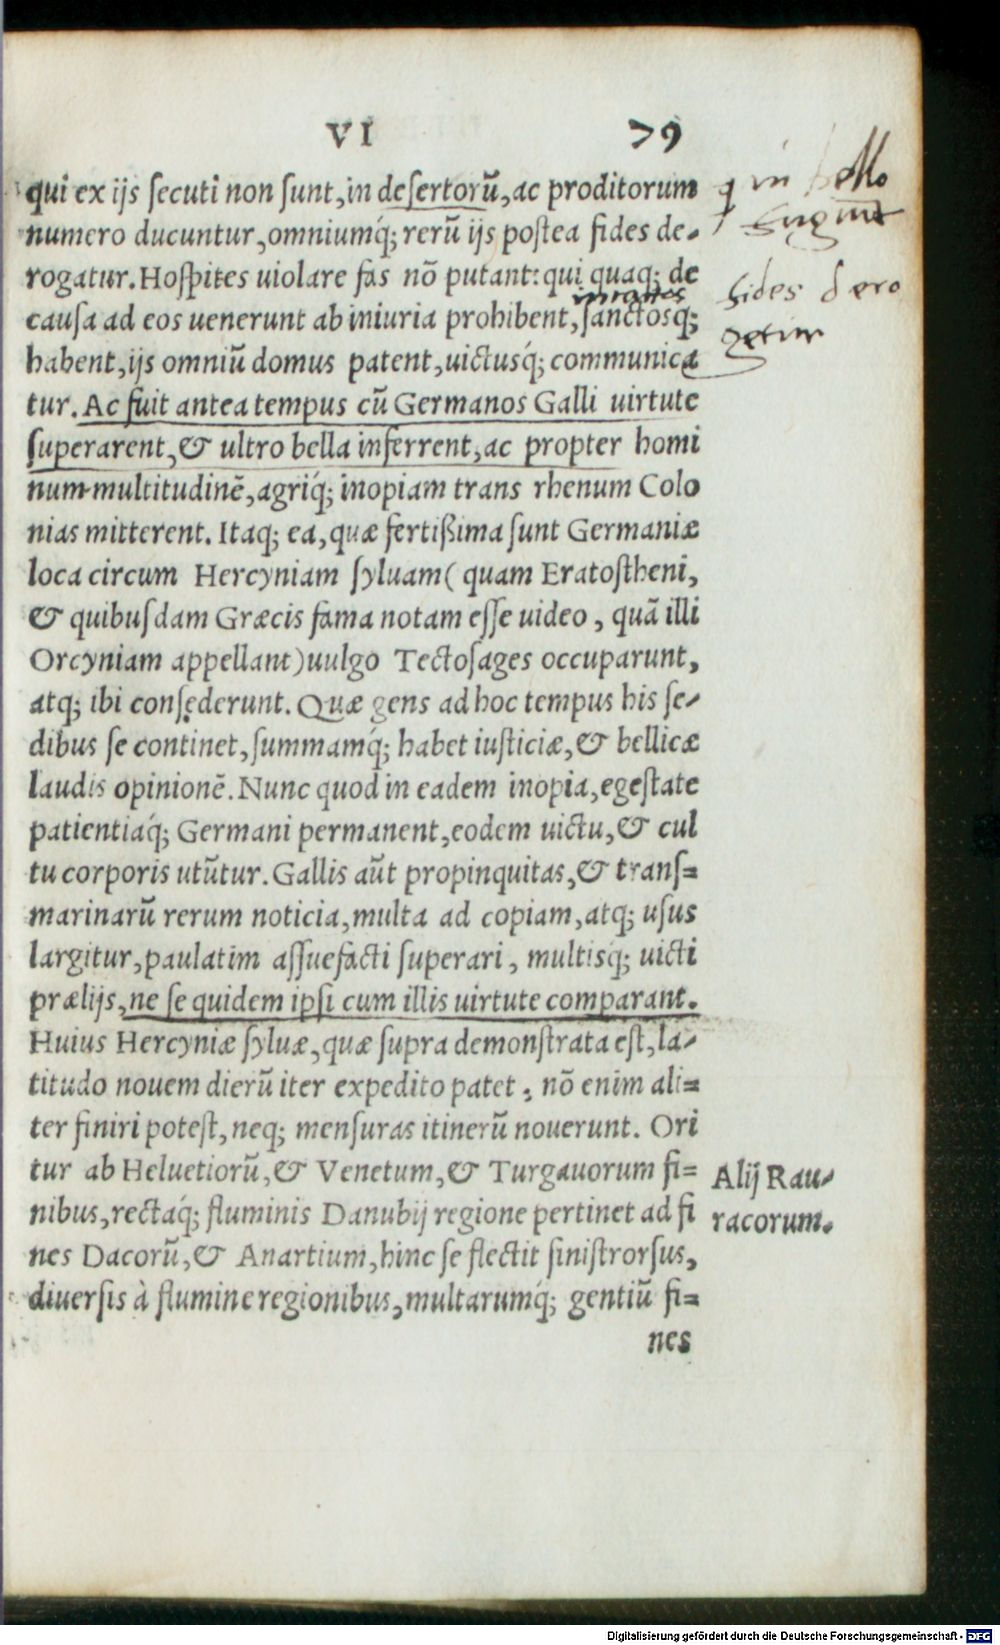 VI 79
qui ex ijs secuti non sunt, in desertorū, ac proditorum
numero ducuntur, omniumq́; rerū ijs postea fides de-
rogatur. Hospites uiolare fas nō putant: qui quaq; de
causa ad eos uenerunt ab iniuria prohibent, sanctosq;
habent, ijs omniū domus patent, uictusq́; communica
tur. Ac fuit antea tempus cū Germanos Galli uirtute
superarent, & ultro bella inferrent, ac propter homi
num multitudinē, agriq́; inopiam trans rhenum Colo
nias mitterent. Itaq; ea, quæ fertißima sunt Germaniæ
loca circum Hercyniam syluam ( quam Eratostheni,
& quibusdam Græcis fama notam esse uideo, quā illi
Orcyniam appellant) uulgo Tectosages occuparunt,
atq; ibi consęderunt. Quæ gens ad hoc tempus his se-
dibus se continet, summamq́; habet iusticiæ, & bellicæ
laudis opinionē. Nunc quod in eadem inopia, egestate
patientiaq́; Germani permanent, eodem uictu, & cul
tu corporis utūtur. Gallis aūt propinquitas, & trans=
marinarū rerum noticia, multa ad copiam, atq; usus
largitur, paulatim assuefacti superari, multisq́; uicti
prælijs, ne se quidem ipsi cum illis uirtute comparant.
Huius Hercyniæ syluæ, quæ supra demonstrata est, la-
titudo nouem dierū iter expedito patet; nō enim ali=
ter finiri potest, neq; mensuras itinerū nouerunt. Ori
tur ab Heluetiorū, & Venetum, & Turgauorum fi=
nibus, rectaq́; fluminis Danubij regione pertinet ad fi
nes Dacorū, & Anartium, hinc se flectit sinistrorsus,
diuersis à flumine regionibus, multarumq́; gentiū fi=
nes
q in bello
fugiūt
fides dero
getur
Alij Rau-
racorum.
Digitalisierung gefördert durch die Deutsche Forschungsgemeinschaft - DFG